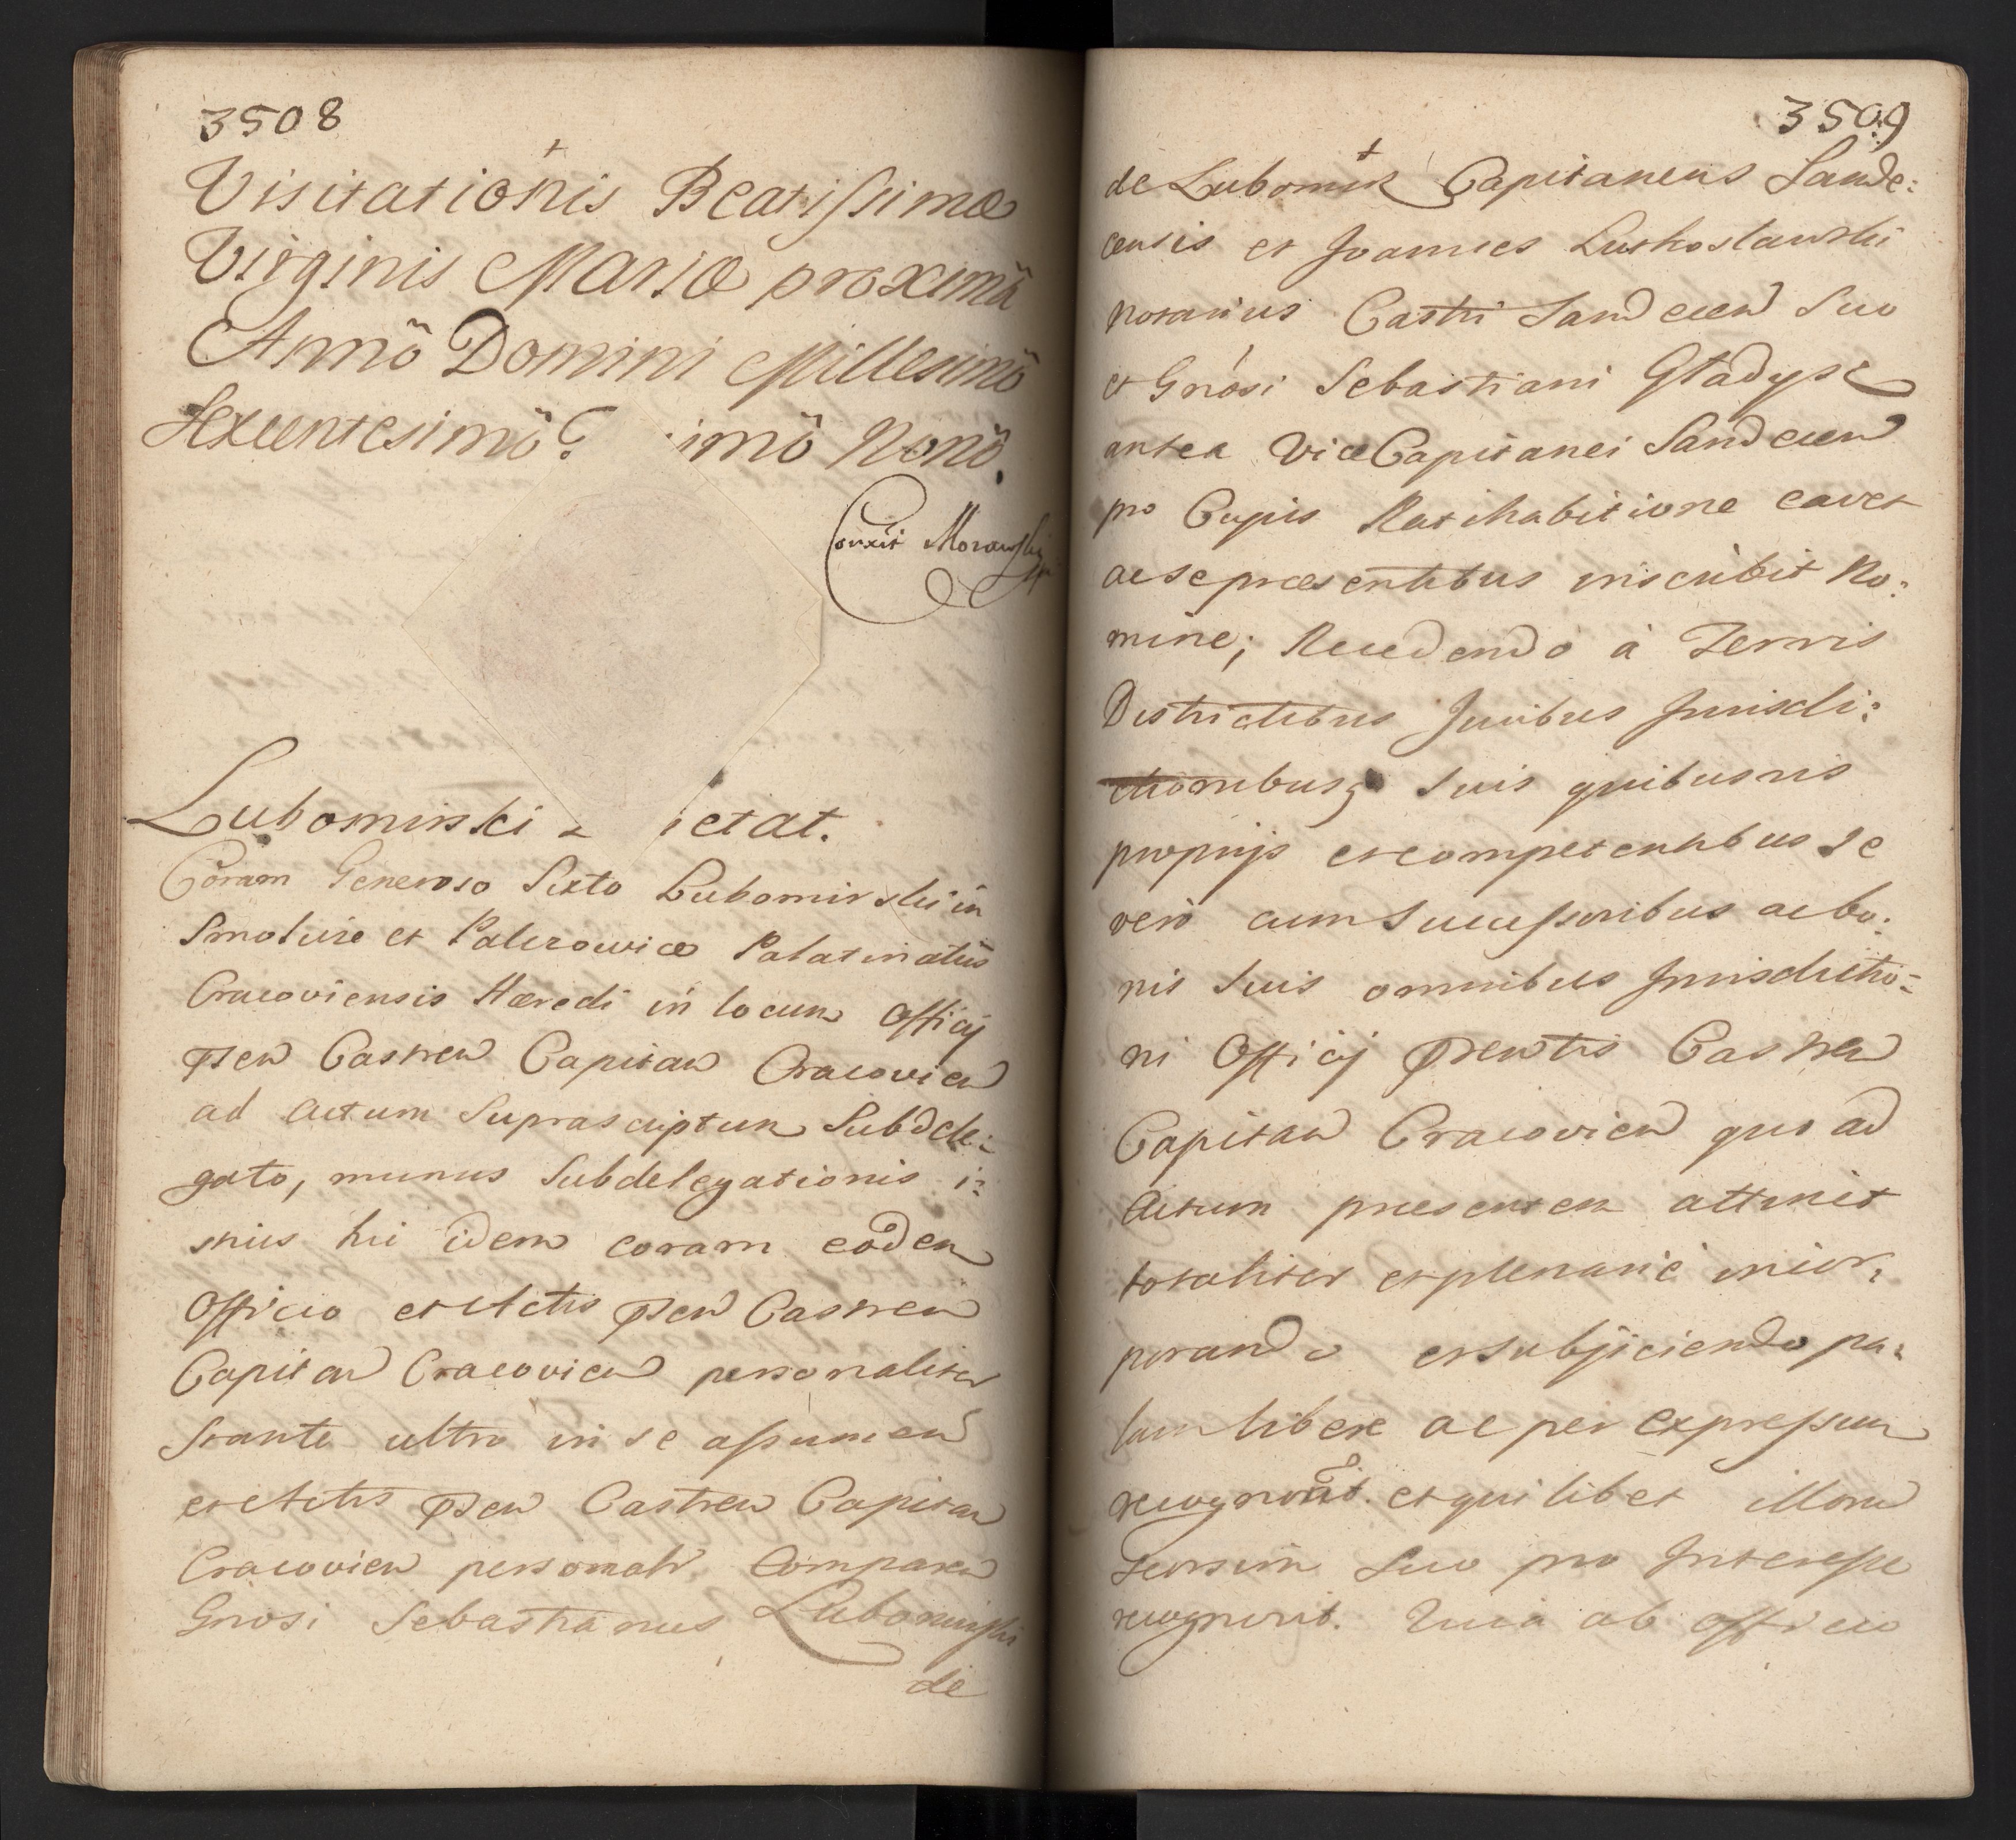 3508
Visitationis Beatissimæ
Virginis Mariæ proximâ
Annô Domini Millesimô
Sexcentesimô imô Nonô.
Correxit Morawski
Lubomirski etat.
Coram Generoso Sixto Lubomirski in
et Palczowice Palatinatûs
Cracoviensis Hæredi in locum Officij
Castren Capitan Cracovien
ad Actum Suprascriptum Subdele:
gato, munus Subdelegationis i:
stius hui idem coram eôdem
Officio et Actis Castren
Capitan Cracovien personaliter
Stante ultro in se assumen
et Actis Castren Capitan
Cracovien personalr, Comparen
Gnosi Sebastianus Lubomirski
de
3509
de Lubomirz Capitaneus Sande:
censis et Joannes Lutkoslawski
Notarius Castri Sandecen Suo
et Gnósi Sebastiani Gładysz
antea ViceCapitanei Sandecen
pro Cujus Ratihabitione cavet
ac se præsentibus inscribit No:
mine; Recedendo à Terris
Districtibus Juribus Jurisdi:
ctionibusq Suis quibusvis
proprijs et competentibus se
vero cum Successoribus ac bo:
nis Suis omnibus Jurisdictio:
ni Officij Castren
Capitan Cracovien quo ad
Actum præsentem attinet
totaliter et plenarie incor:
porando et subjiciendo pa:
lam libere ac per expressum
recognovit. et quilibet illorum
Seorsim Suo pro Interesse
recognovit. Quia ab officio